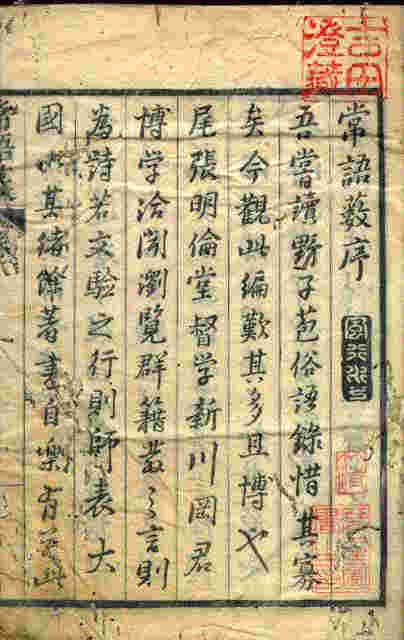 吉田
澄藏
常語藪序
吾嘗讀野子苞俗語錄惜其寡
矣今觀此編歎其多且博也
尾張明倫堂督学新川岡君
博学洽聞瀏覽群籍發之言則
為詩若文驗之行則師表大
國以其緒餘著書自樂有